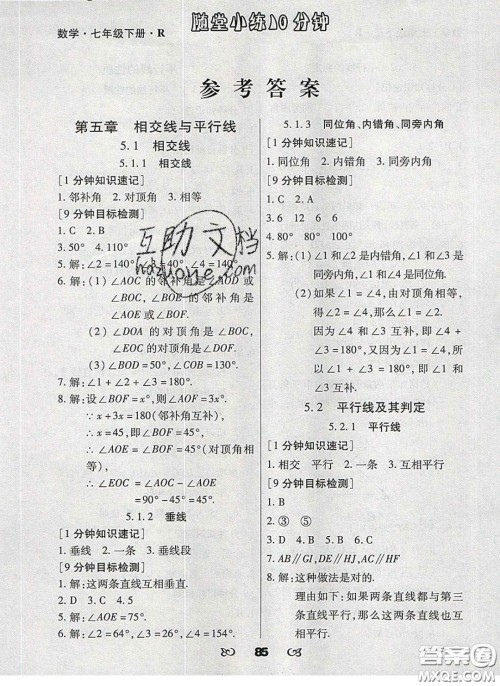 数学·七年级下册·R
随堂小练10分钟
参考答案
第五章 相交线与平行线
5.1 相交线
5.1.1 相交线
[1分钟知识速记]
1. 邻补角 2. 对顶角 3. 相等
[9分钟目标检测]
1. C 2. B
3. 50° 4. 110°
5. 解:∠2=140°,∠3=40°,∠4=140°.
6. 解:(1)∠AOC 的邻补角是∠AOD 或
∠BOC,∠BOE 的邻补角是
∠AOE 或∠BOF.
(2)∠DOA 的对顶角是∠BOC,
∠EOC 的对顶角是∠DOF.
(3)∠BOD=50°,∠COE=130°.
7. 解:∠1+∠2+∠3=180°.
8. 解:设∠BOF=x°,则∠AOF=3x°.
∵x+3x=180(邻补角互补),
∴x=45,即∠BOF=45°,
∴∠AOE=∠BOF=45°(对顶角相
等).
∴∠EOC=∠AOC-∠AOE
=90°-45°=45°.
5.1.2 垂线
[1分钟知识速记]
1. 垂线 2. 一条 3. 垂线段
[9分钟目标检测]
1. 解:这两条直线互相垂直.
2. D 3. C 4. 5
5. 解:∠AOE=75°.
6. 解:∠2=64°,∠3=26°,∠4=154°.
5.1.3 同位角、内错角、同旁内角
[1分钟知识速记]
1. 同位角 2. 内错角 3. 同旁内角
[9分钟目标检测]
1. C 2. A
3. 6 12 6 6
4. B
5. 解:(1)∠1和∠2是内错角,∠1和∠3是
同旁内角,∠1和∠4是同位角.
(2)如果∠1=∠4,由对顶角相等,
得∠2=∠4,那么∠1=∠2.
因为∠4和∠3互补,即∠4+
∠3=180°,又因为∠1=∠4,所
以∠1+∠3=180°,即∠1和
∠3互补.
5.2 平行线及其判定
5.2.1 平行线
[1分钟知识速记]
1. 相交 平行 2. 一条 3. 互相平行
[9分钟目标检测]
1. B
2. ③ ⑤
3. D 4. B 5. C 6. B
7. AB∥GI,DE∥HJ,AC∥HF
8. 解:这种做法是对的.
理由如下:如果两条直线都与第三
条直线平行,那么这两条直线也互
相平行.
85
互助文档
hdzuoye.com
答案圈
MXQE.COM